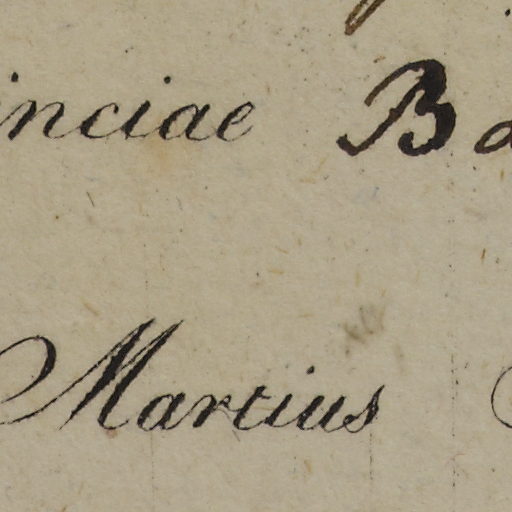 inciae Ba
Martius